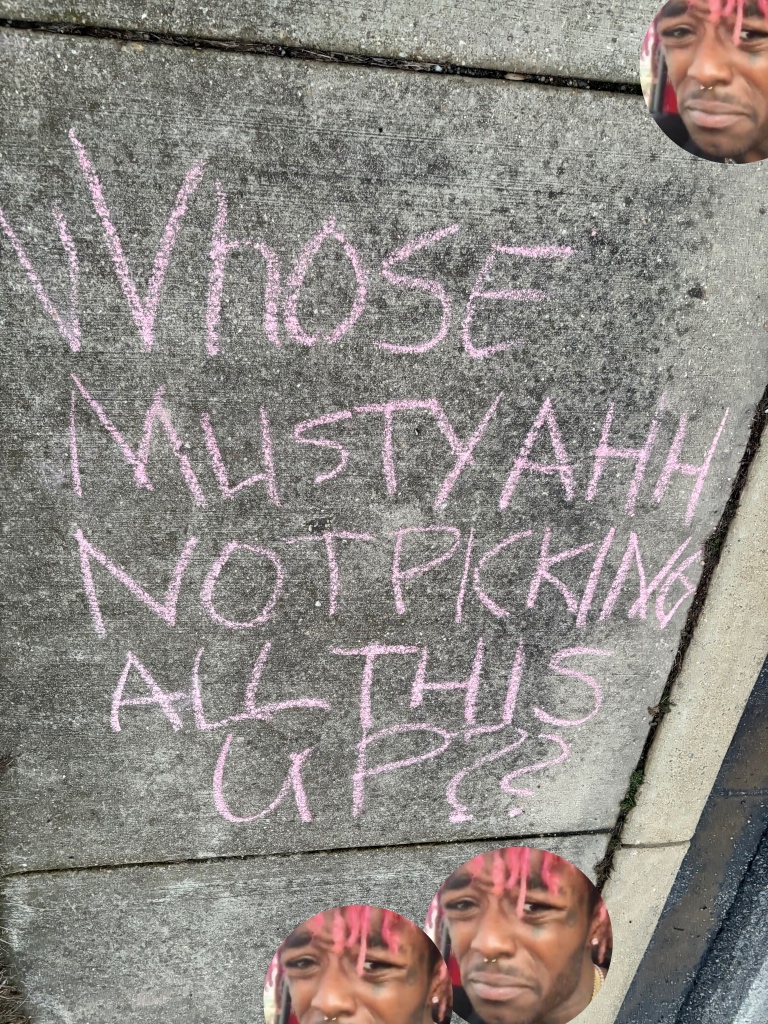 WhOSE
MUSTY AHH
NOT PICKING
ALL THIS
UP??